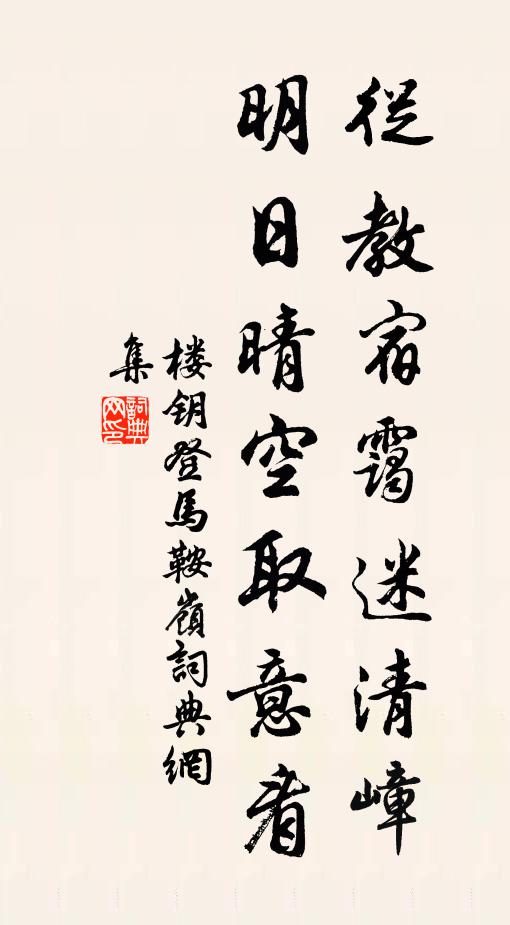 從教宿靄迷清嶂
明日晴空取意看
楼钥登馬鞍嶺詞典網
集
詞典網印